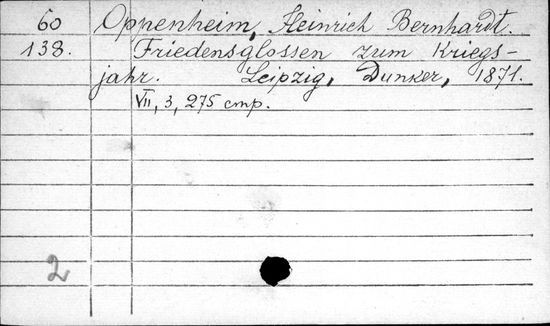 60 Oppenheim, Heinrich Bernhardt.
138. Friedensglossen zum Kriegs-
jahr. Leipzig, Dunker, 1871.
VII, 3, 275 cmp.
2